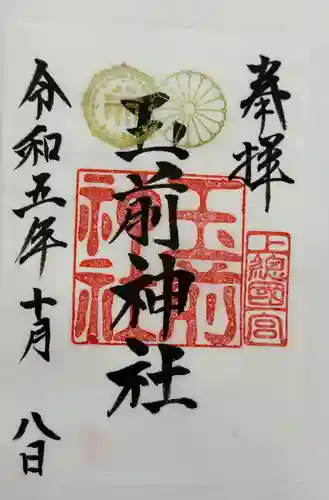 奉拝
上總國一宮
玉前神社
玉前神社
令和五年十月八日